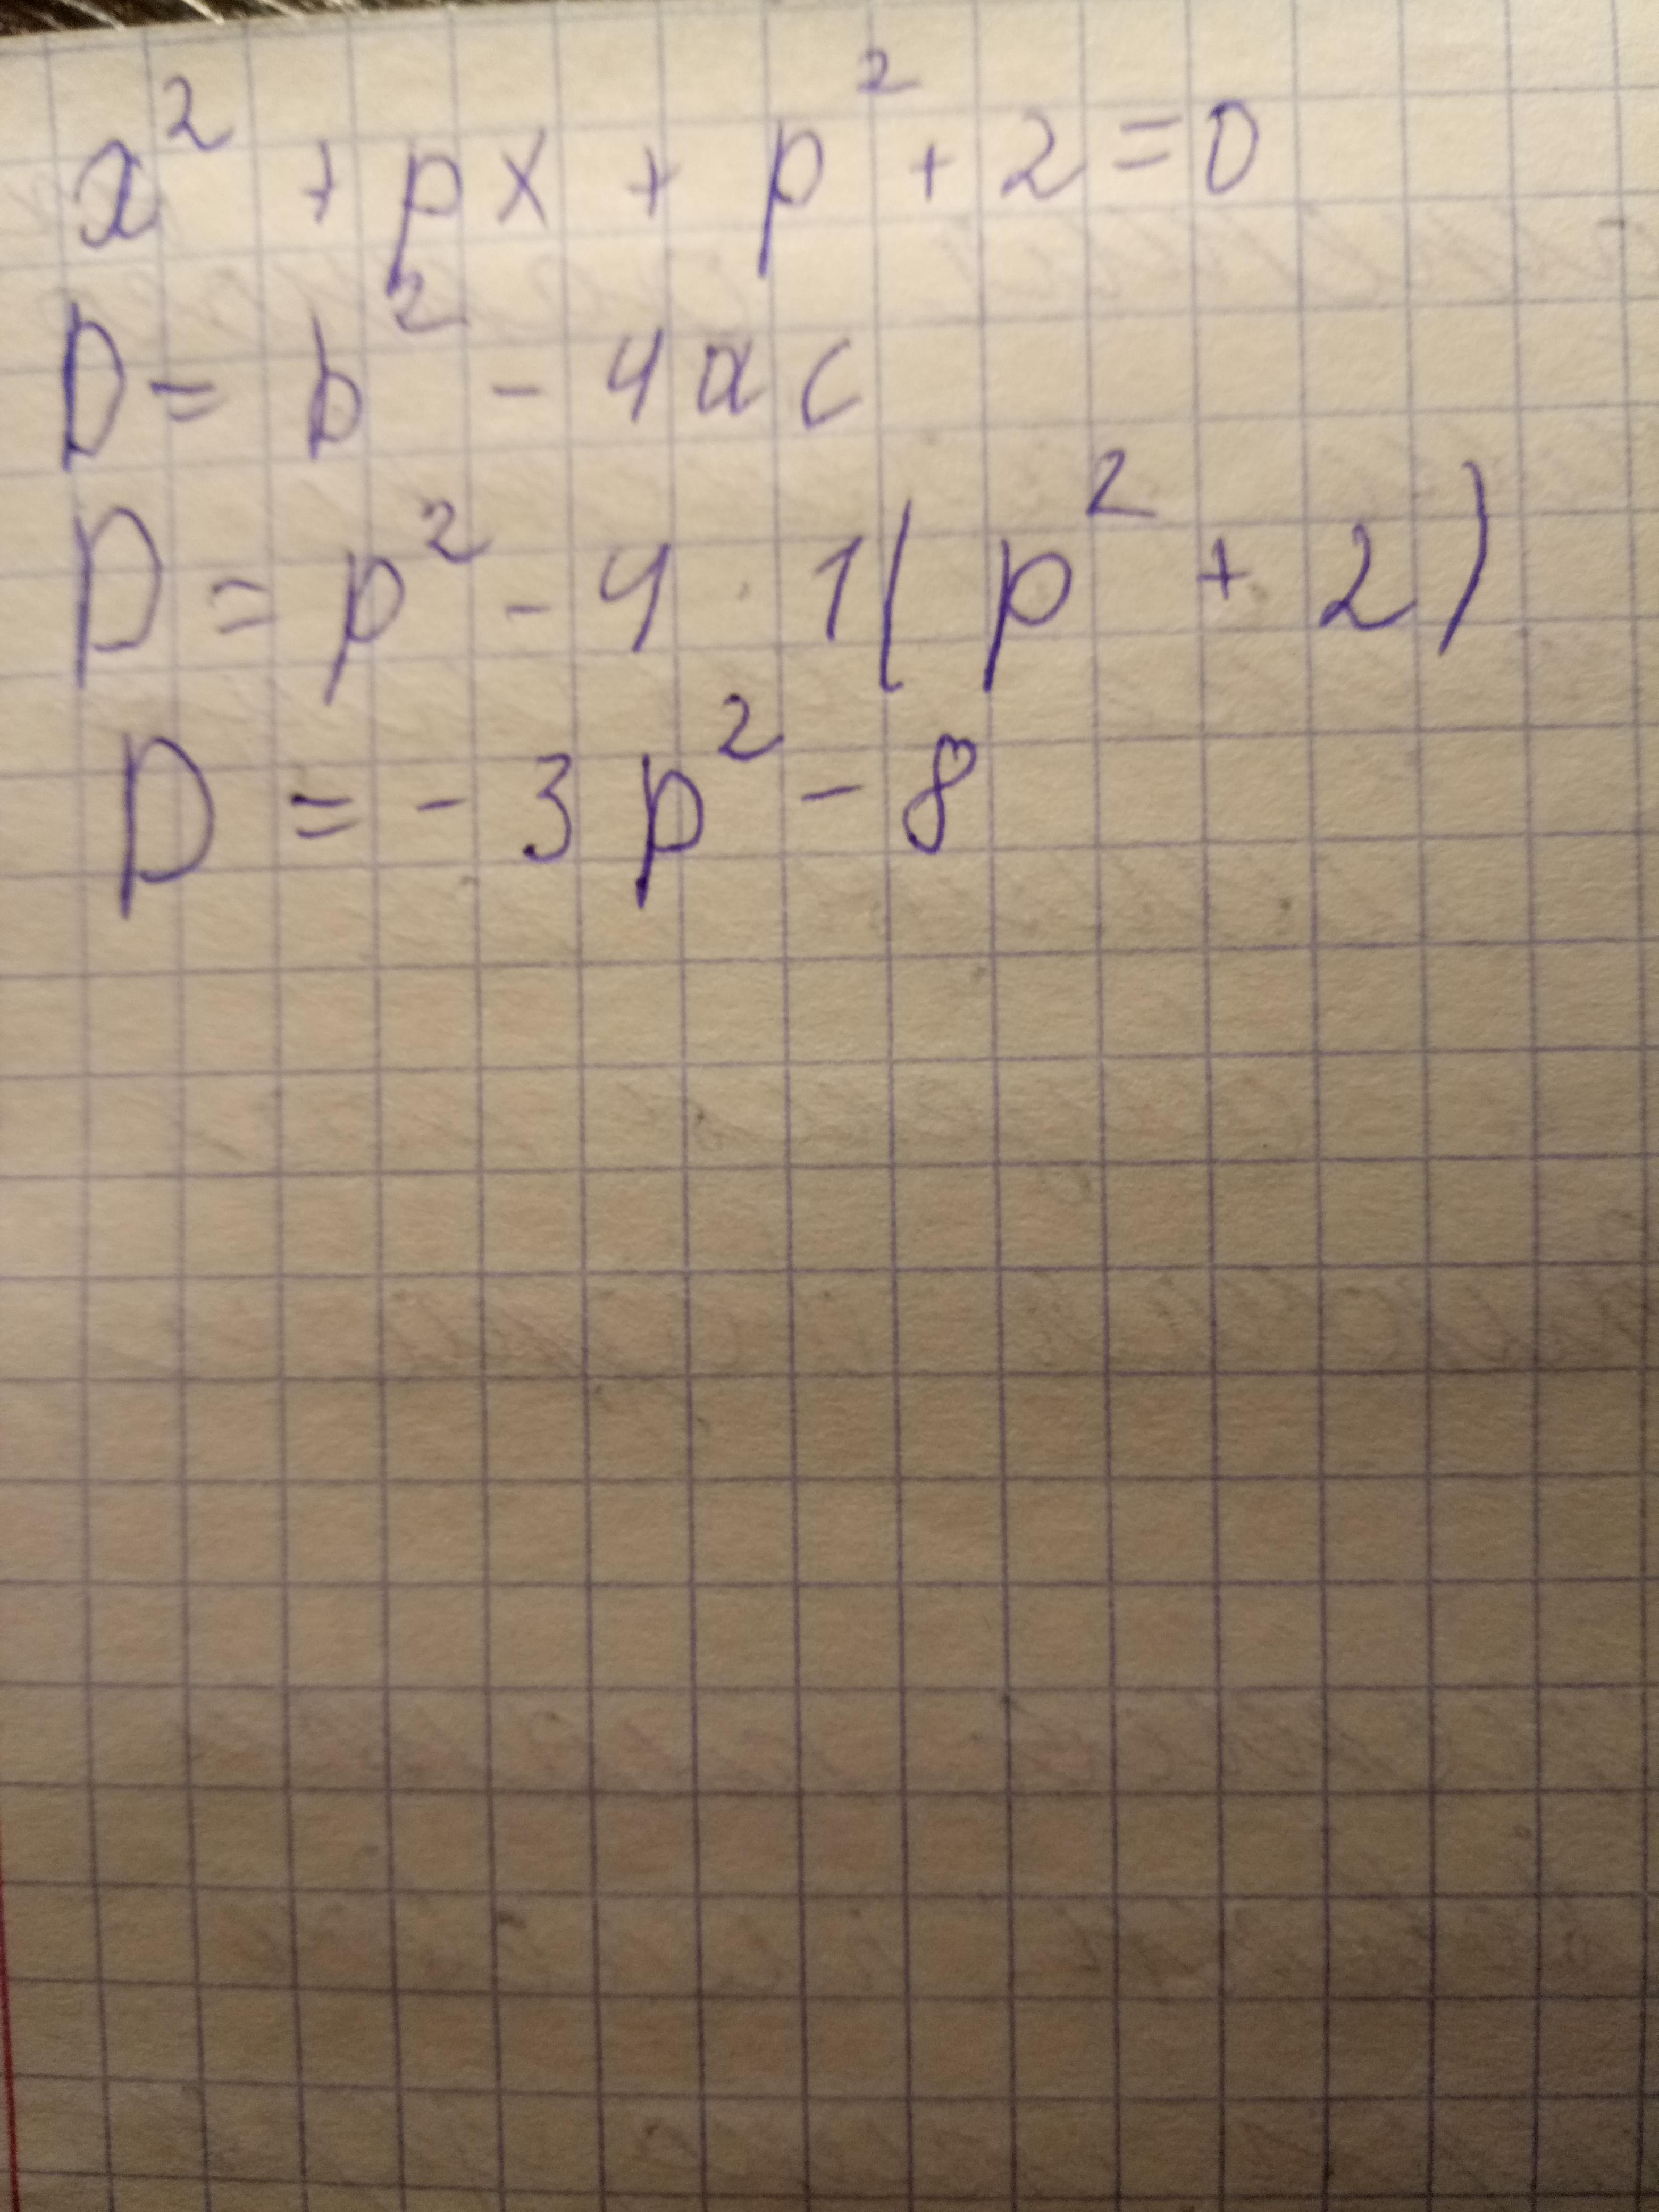 x² + px + p² + 2 = 0
D = b² - 4ac
D = p² - 4 · 1(p² + 2)
D = -3p² - 8